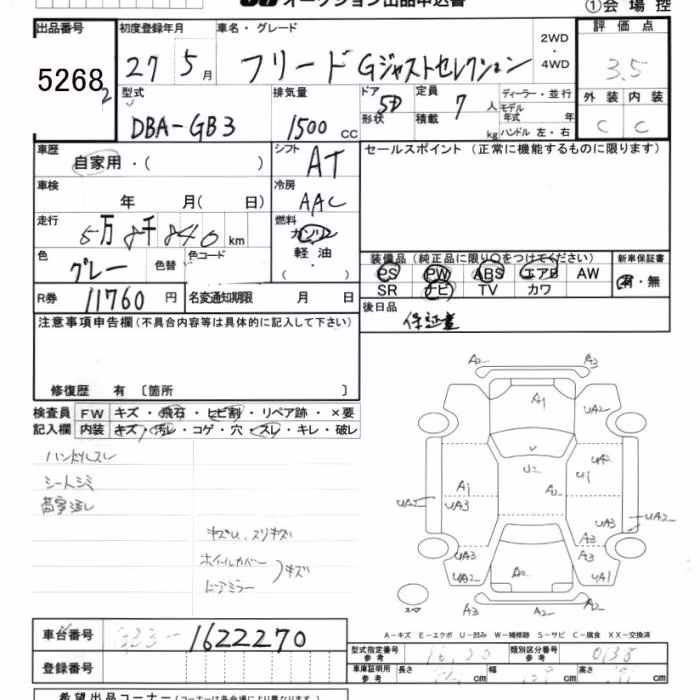 オークション出品申込書
①会場控
出品番号
5268
2
初度登録年月
27 5月
車名・グレード
フリード Gジャストセレクション
2WD
・
4WD
評価点
3.5
外装 内装
C C
型式
DBA-GB3
排気量
1500 CC
ドア 5D
形状
定員 7 人
積載 kg
ディーラー・並行
モデル年式 年
ハンドル 左・右
車歴
自家用・( )
シフト AT
セールスポイント(正常に機能するものに限ります)
車検
年 月(日)
冷房
AAC
走行
5万8千840km
燃料
ガソリン
軽油
( ・ )
色
グレー
色替
色コード
装備品(純正品に限り○をつけてください)
PS PW ABS エアB AW
SR ナビ TV カワ
新車保証書
有・無
R券 11760 円
名変通知期限 月 日
後日品
保証書
注意事項申告欄(不具合内容等は具体的に記入して下さい)
修復歴 有〔箇所 〕
検査員 FW キズ・飛石・ヒビ割・リペア跡・×要
記入欄 内装 キズ・汚レ・コゲ・穴・スレ・キレ・破レ
ハンドルスレ
シートシミ
キズU、スリキズ
ホイールカバー
ドアミラー
キズ
A2 A3
A1
UA2
V
U2
UA2
U1
A1
A2
UA3
UA2
UA3
UA2
UA3
A3
A3
UA3
A2
UA1
スペア
A3 A2 A3
A-キズ E-エクボ U-凹み W-補修跡 S-サビ C-腐食 XX-交換済
車台番号 GB3-1622270
登録番号
型式指定番号
参考
類別区分番号
参考
0138
車庫証明用
参考
長さ 幅 高さ
希望出品コーナー(コーナーは各会場により異なります)